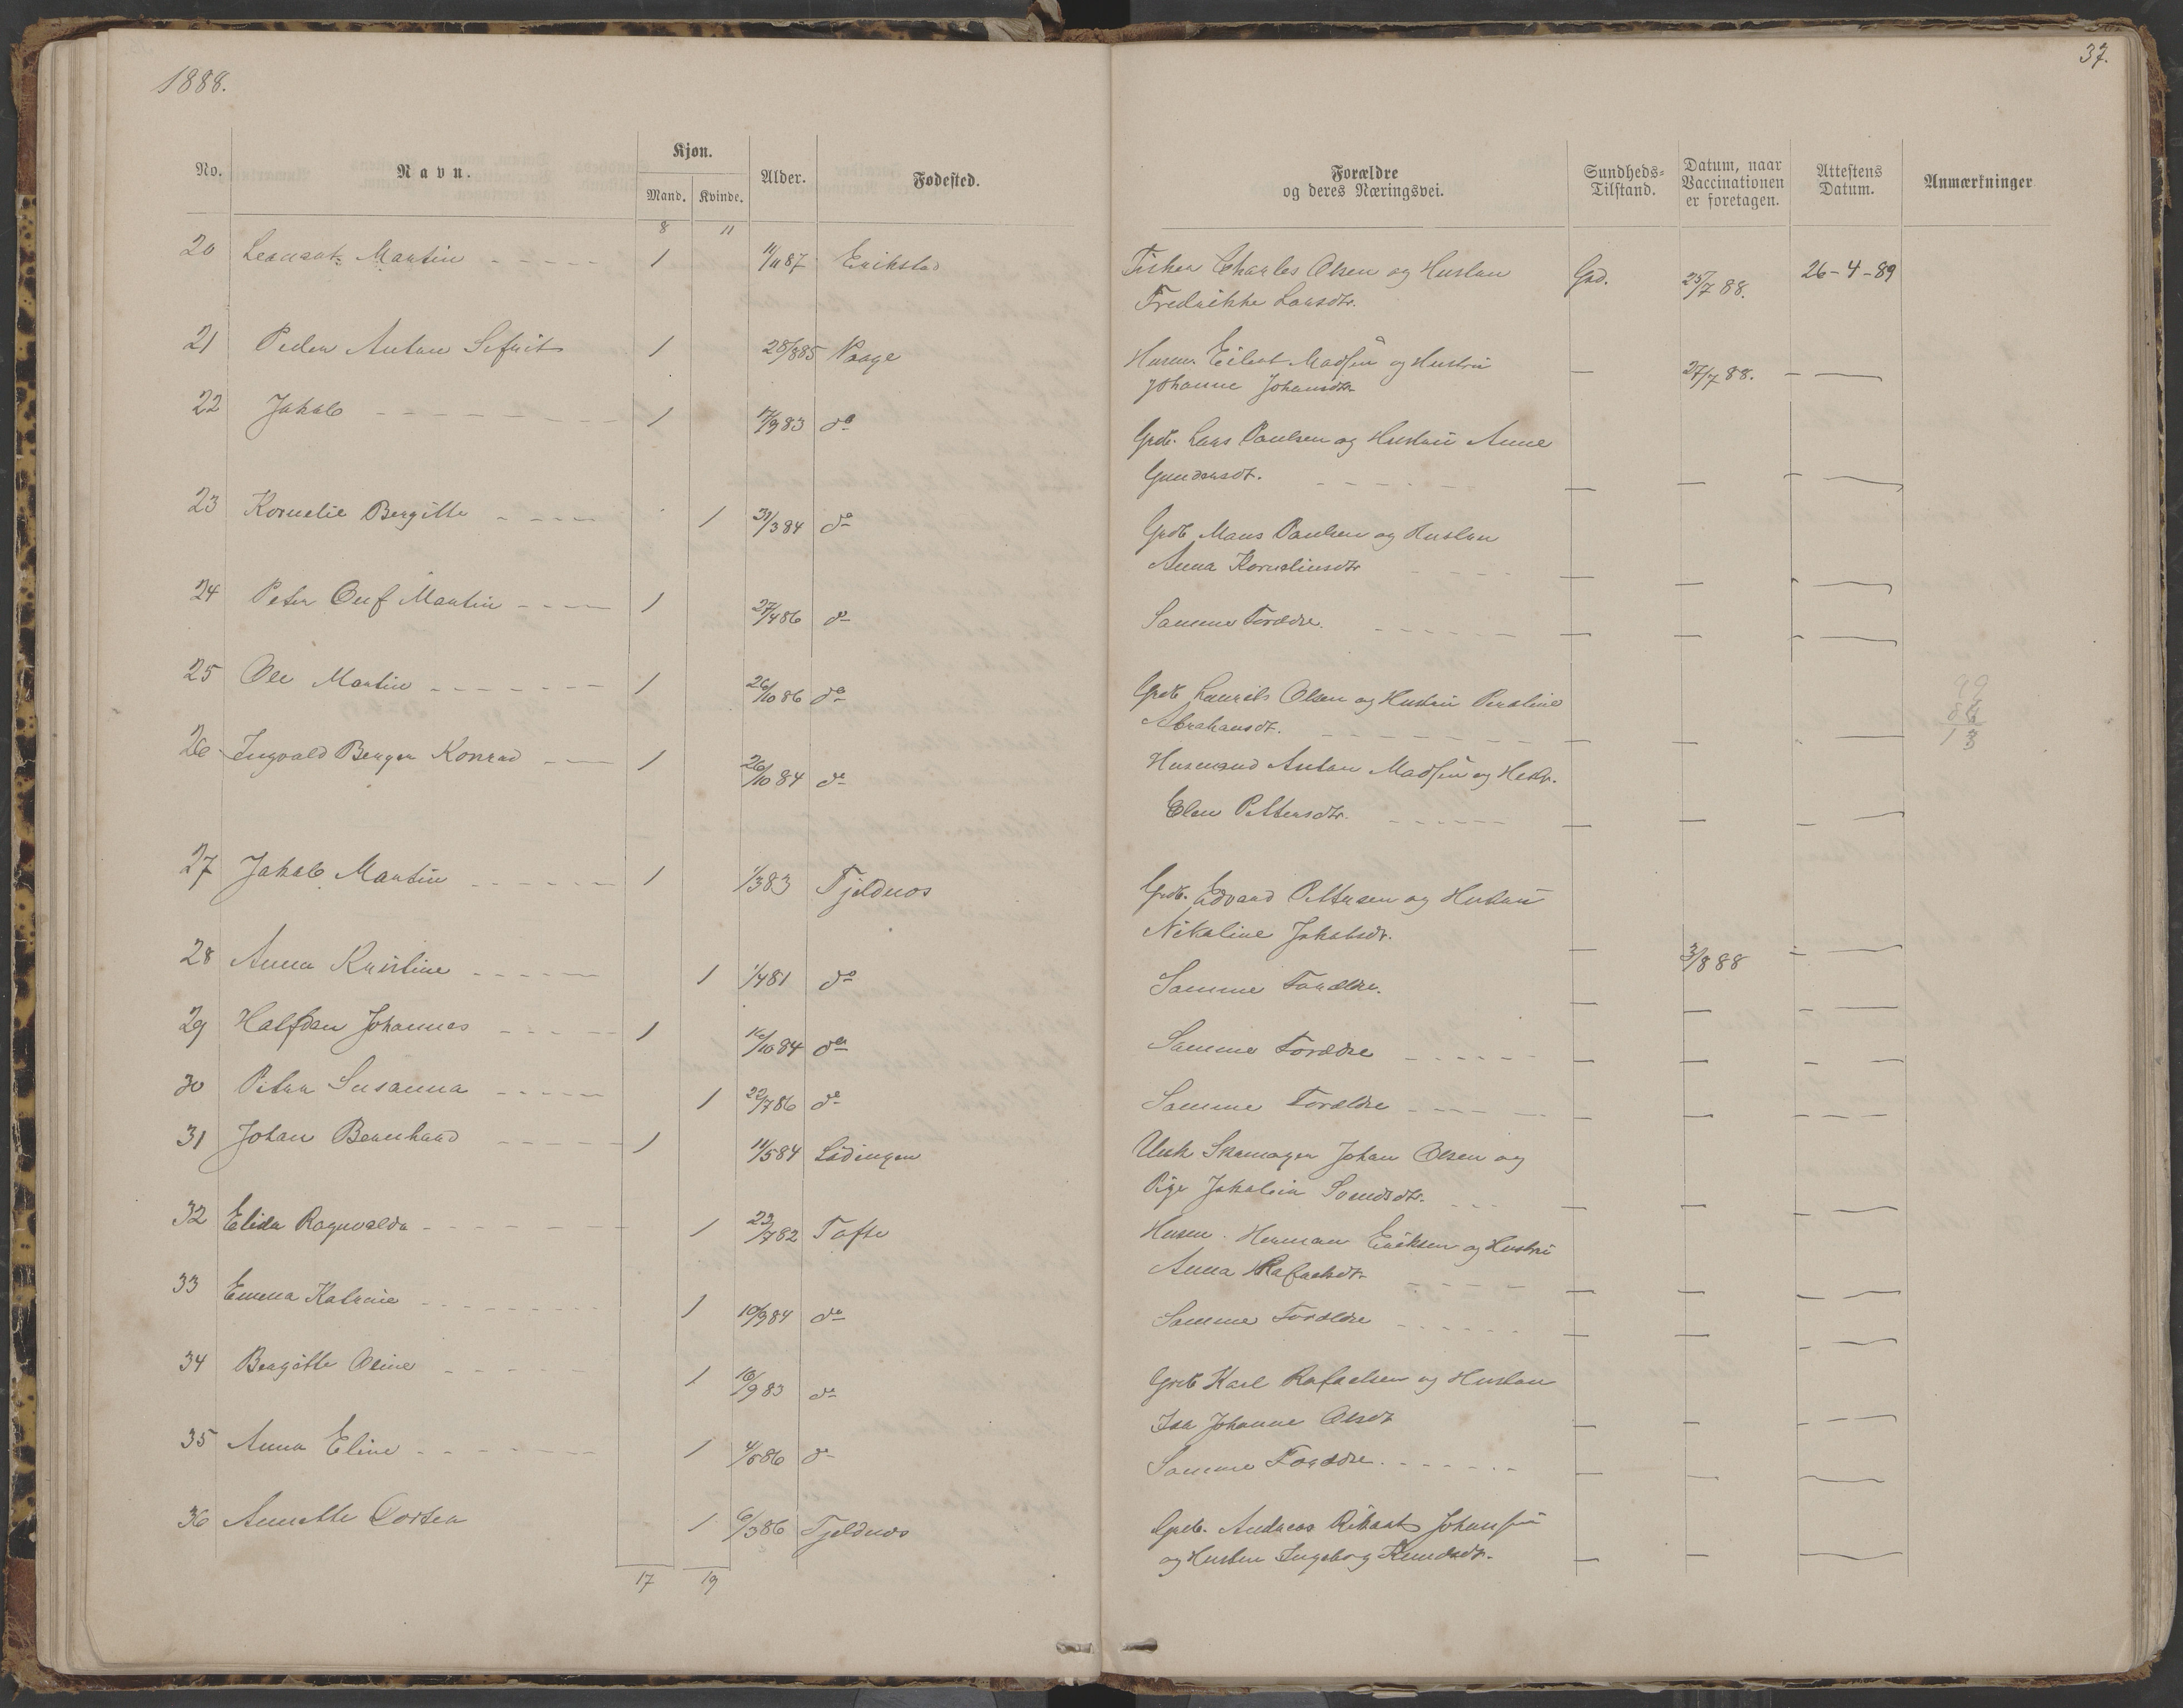 1888.
37.
No. Navn. Kjøn. Mand. Kvinde. Alder. Fødested. Forældre og deres Næringsvei. Sundheds-Tilstand. Datum, naar Vaccinationen er foretagen. Attestens Datum. Anmærkninger
8 11
20 Martin 1 11/11 87 Erikstad Fisker Charles Olsen og Hustru God. 25/7 88. 26-4-89
Fredrikke Larsdtr.
21 Peder Anton Sefrit 1 28/8 85 Vaage Husm. Eilert Madsen og Hustru — 27/7 88. — —
Johanne Johansdtr
22 Jakob 1 17/9 83 do Grdb. Lars Paulsen og Hustru Anne
Gundersdt. — — — —
23 Kornelie Bergitte 1 31/3 84 do Grdb Mans Paulsen og Hustru
Anna Korneliusdtr — — — —
24 Peter Oluf Martin 1 27/4 86 do Samme Forældre. — — — —
25 Ole Martin 1 26/10 86 do Grdb Laurits Olsen og Hustru Peroline
Abrahamsdt. — — —
99
86
13
26 Ingvald Berger Konrad 1 26/10 84 do Husmand Anton Madsen og Hustr.
Elen Pettersdtr. — — — —
27 Jakob Martin 1 1/3 83 Tjeldnes Grdb. Edvard Pettersen og Hustru
Nikoline Jakobsdt. — 3/8 88 — —
28 Anna Kristine 1 1/4 81 do Samme Forældre. — — — —
29 Halfdan Johannes 1 16/10 84 do Samme Forældre — — — —
30 Petra Susanna 1 22/7 86 do Samme Forældre — — — —
31 Johan Bernhard 1 11/5 84 Lødingen Unk Skomager Johan Olsen og
Pige — — — —
32 Elida Ragnvalda 1 23/7 82 Tofte Husm. Herman Eriksen og Hustru
Anna Rafaelsdt — — — —
33 Emma Katrine 1 10/9 84 do Samme Forældre — — — —
34 Bergitte Oline 1 16/9 83 do Grdb Karl Rafaelsen og Hustru
Ida Johanne Olsdt — — — —
35 Anna Eline 1 4/6 86 do Samme Forældre — — —
36 Annette Dortea 1 6/3 86 Tjeldnes Grdb. Andreas Rikart Johansen
og Hustru Ingeborg Knudsdt. — — —
17 19